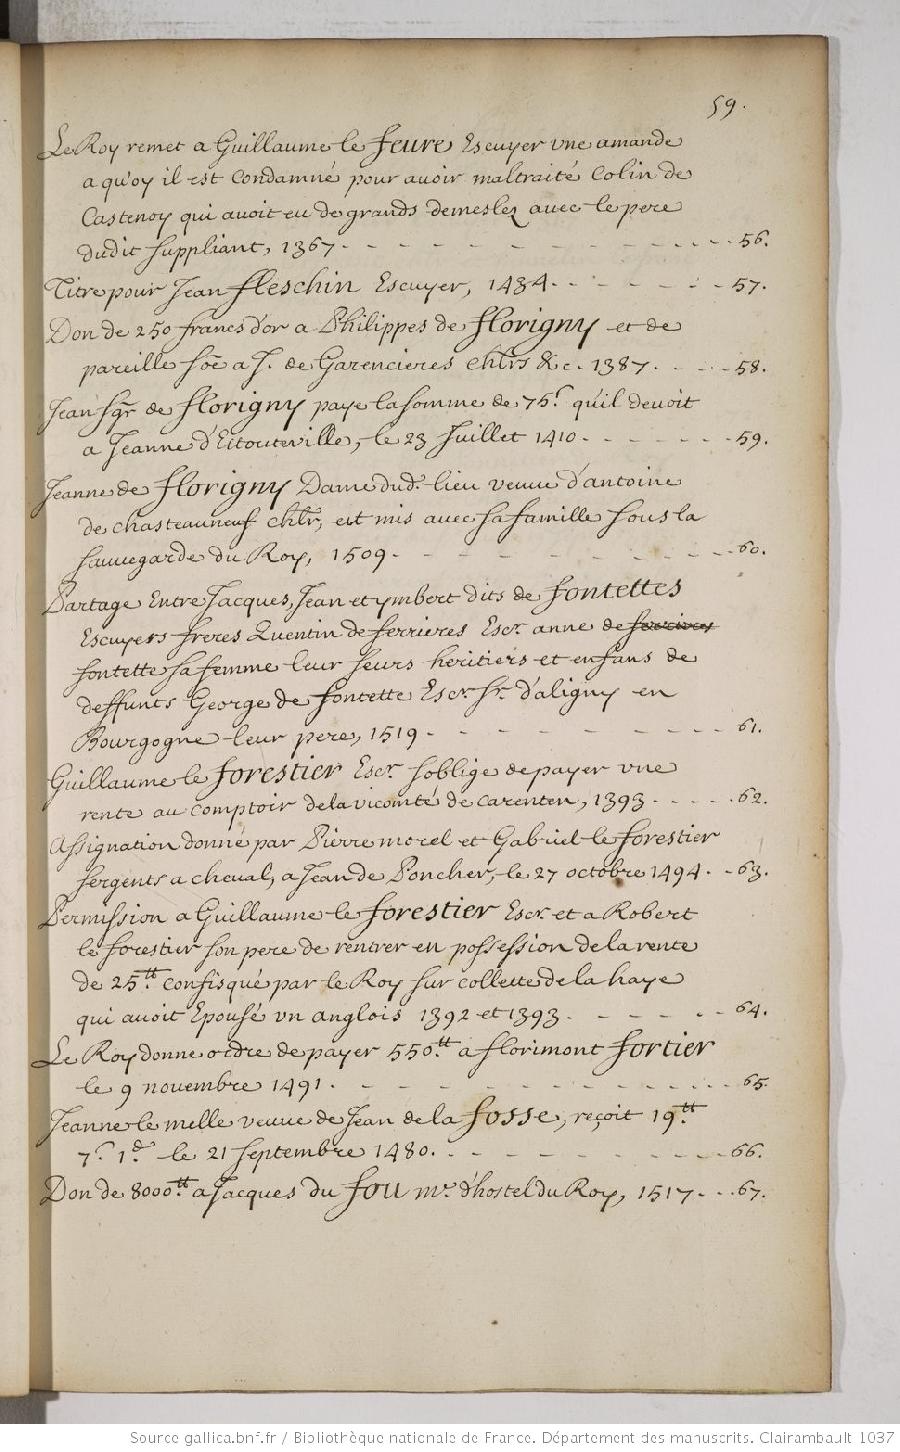 59.
Le Roy remet a Guillaume le feure Escuyer vne amande
a quoy il est condamné pour avoir maltraité Colin de
Castenoy qui avoit eu de grands demeslez avec le pere
dudit suppliant, 1367. - - - - - - - - - - 56.
Titre pour Jean fleschin Escuyer, 1434. - - - - - 57.
Don de 250 francs d'or a Philippes de florigny et de
pareille soe a J. de Garencieres chlrs &c. 1387. - - - 58.
Jean sgr de florigny paye la somme de 75s. qu'il devoit
a Jeanne d'Estouteville, le 23 Juillet 1410. - - - - 59.
Jeanne de florigny Dame dud. lieu veuve d'antoine
de chasteauneuf chlr, est mis avec sa famille sous la
sauvegarde du Roy, 1509. - - - - - - - - 60.
Partage Entre Jacques, Jean et ymbert dits de fontettes
Escuyers freres Quentin de ferrieres Escr. anne de ferrieres
fontette sa femme leur seurs heritiers et enfans de
deffunts George de fontette Escr. sr. d'aligny en
Bourgogne leur pere, 1519 - - - - - - - - 61.
Guillaume le forestier Escr. s'oblige de payer vne
rente au comptoir de la vicomté de carenten, 1393. - - - 62.
Assignation donné par Pierre morel et Gabriel le forestier
sergents a cheval, a Jean de Poncher, le 27 octobre 1494. - 63.
Permission a Guillaume le forestier Escr. et a Robert
le forestier son pere de rentrer en possession de la rente
de 25tt. confisqué par le Roy sur collette de la haye
qui avoit Epousé vn anglois 1392 et 1393. - - - - - 64.
Le Roy donne ordre de payer 550tt. a florimont fortier
le 9 novembre 1491. - - - - - - - - - - 65.
Jeanne le melle veuve de Jean de la fosse, reçoit 19tt
7s. 1d. le 21 septembre 1480. - - - - - - - - 66.
Don de 8000tt. a Jacques du fou mr. d'hostel du Roy, 1517. - - 67.
Source gallica.bnf.fr / Bibliothèque nationale de France. Département des manuscrits. Clairambault 1037